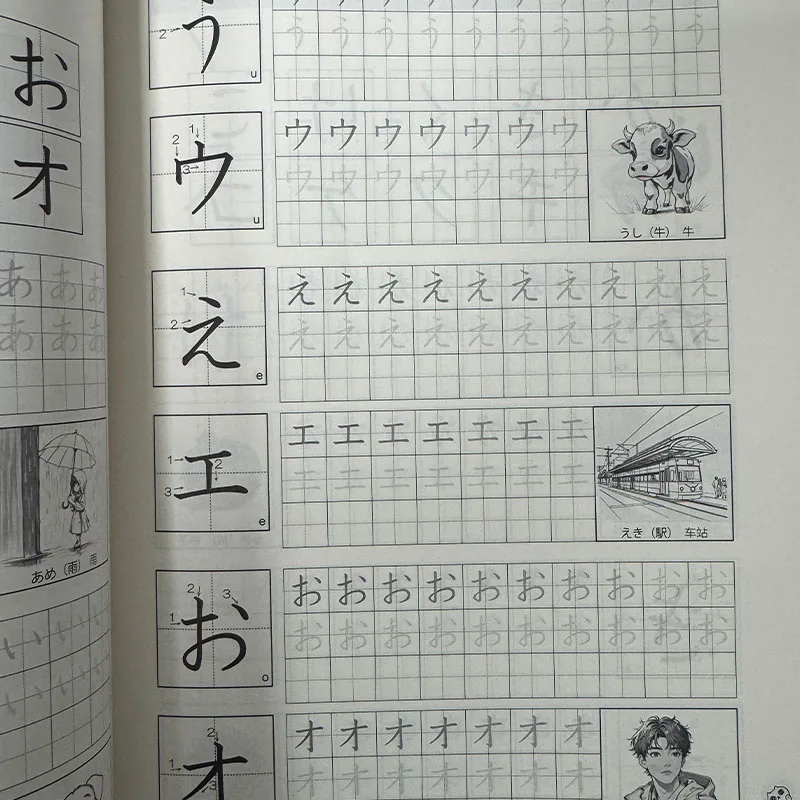 お
オ
あ あ あ
あ あ あ
あめ（雨） 雨
2 う u
う う う う う う う う う う
1 2 3 ウ u
ウ ウ ウ ウ ウ ウ ウ
ウ ウ ウ ウ ウ ウ ウ
うし（牛） 牛
1 2 え e
え え え え え え え え え え
え え え え え え え え え え
1 2 3 エ e
エ エ エ エ エ エ エ
エ エ エ エ エ エ エ
えき（駅） 车站
1 2 3 お o
お お お お お お お お お お
お お お お お お お お お お
1 2 3 オ
オ オ オ オ オ オ オ
オ オ オ オ オ オ オ